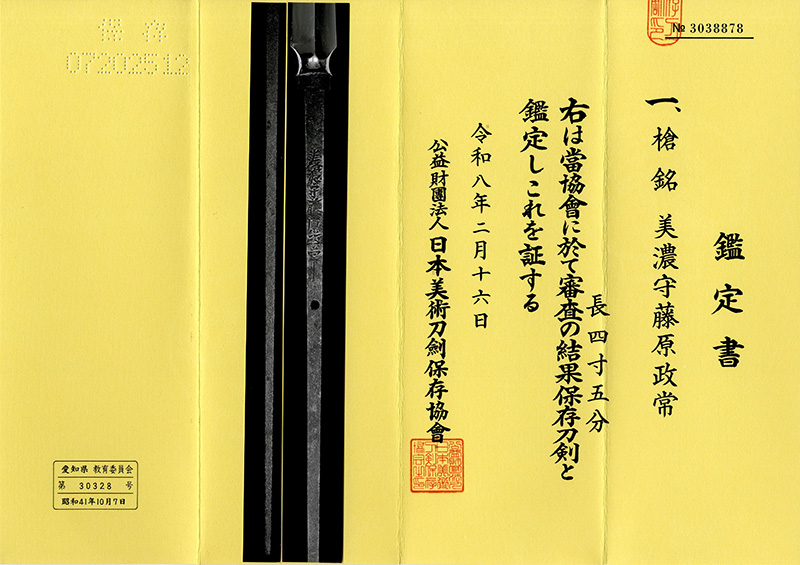 № 3038878
鑑定書
一、槍 銘 美濃守藤原政常
長四寸五分
右は當協會に於て審査の結果保存刀剣と
鑑定しこれを証する
令和八年二月十六日
公益財團法人 日本美術刀劍保存協會
保存
07202512
愛知県 教育委員会
第 30328 号
昭和41年10月7日